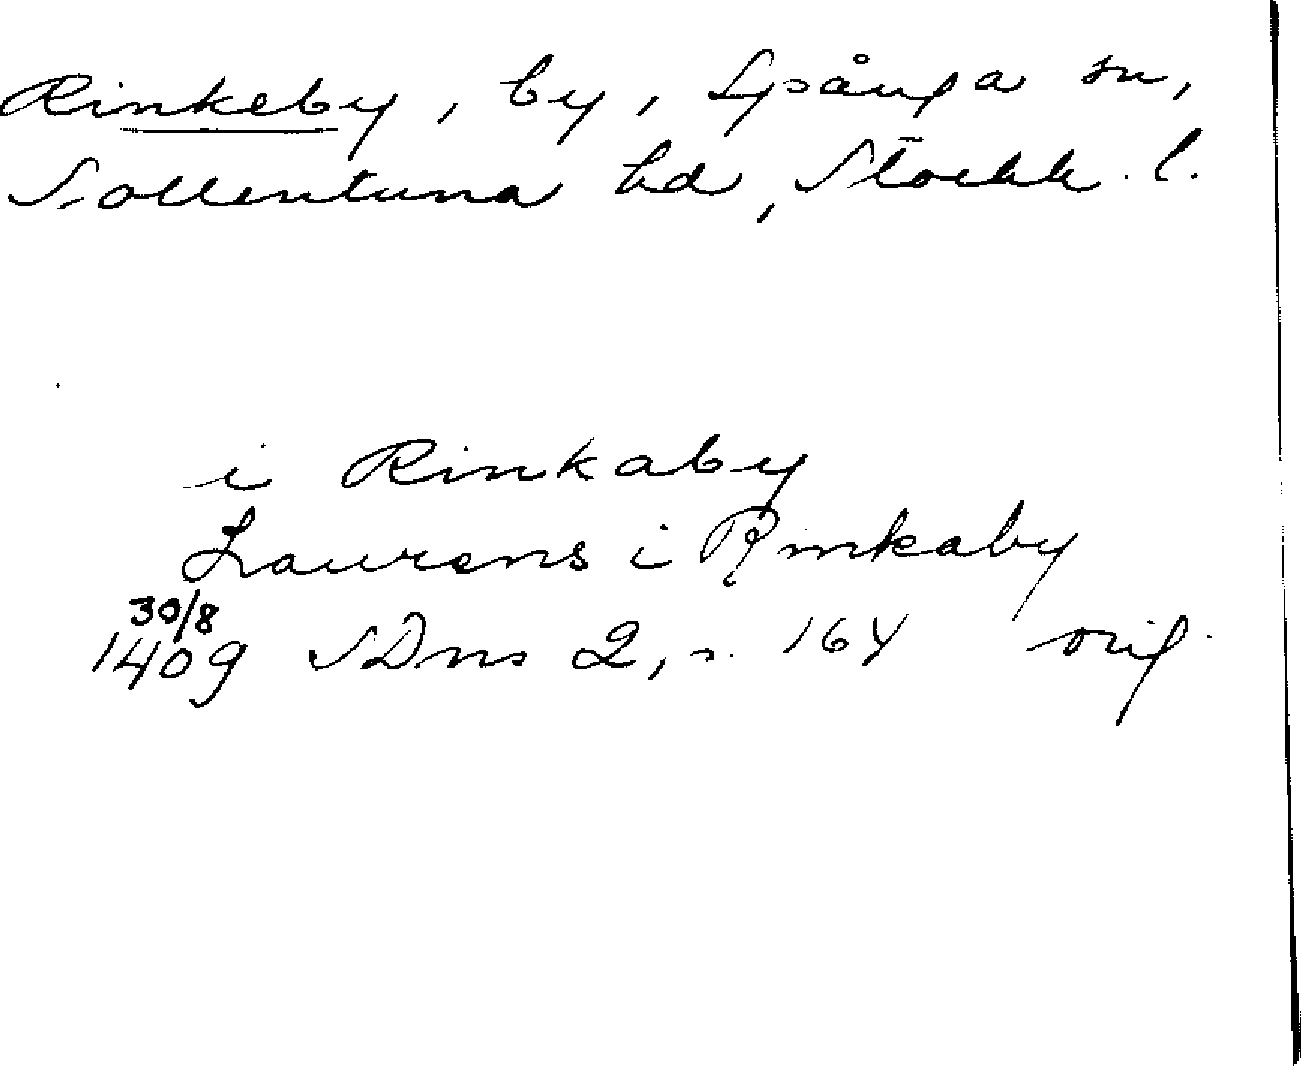 Rinkeby, by, Spånga sn,
Sollentuna hd, Stockh. l.
i Rinkaby
Laurens i Rinkaby
30/8
1409 SDns 2, s. 164 orig.